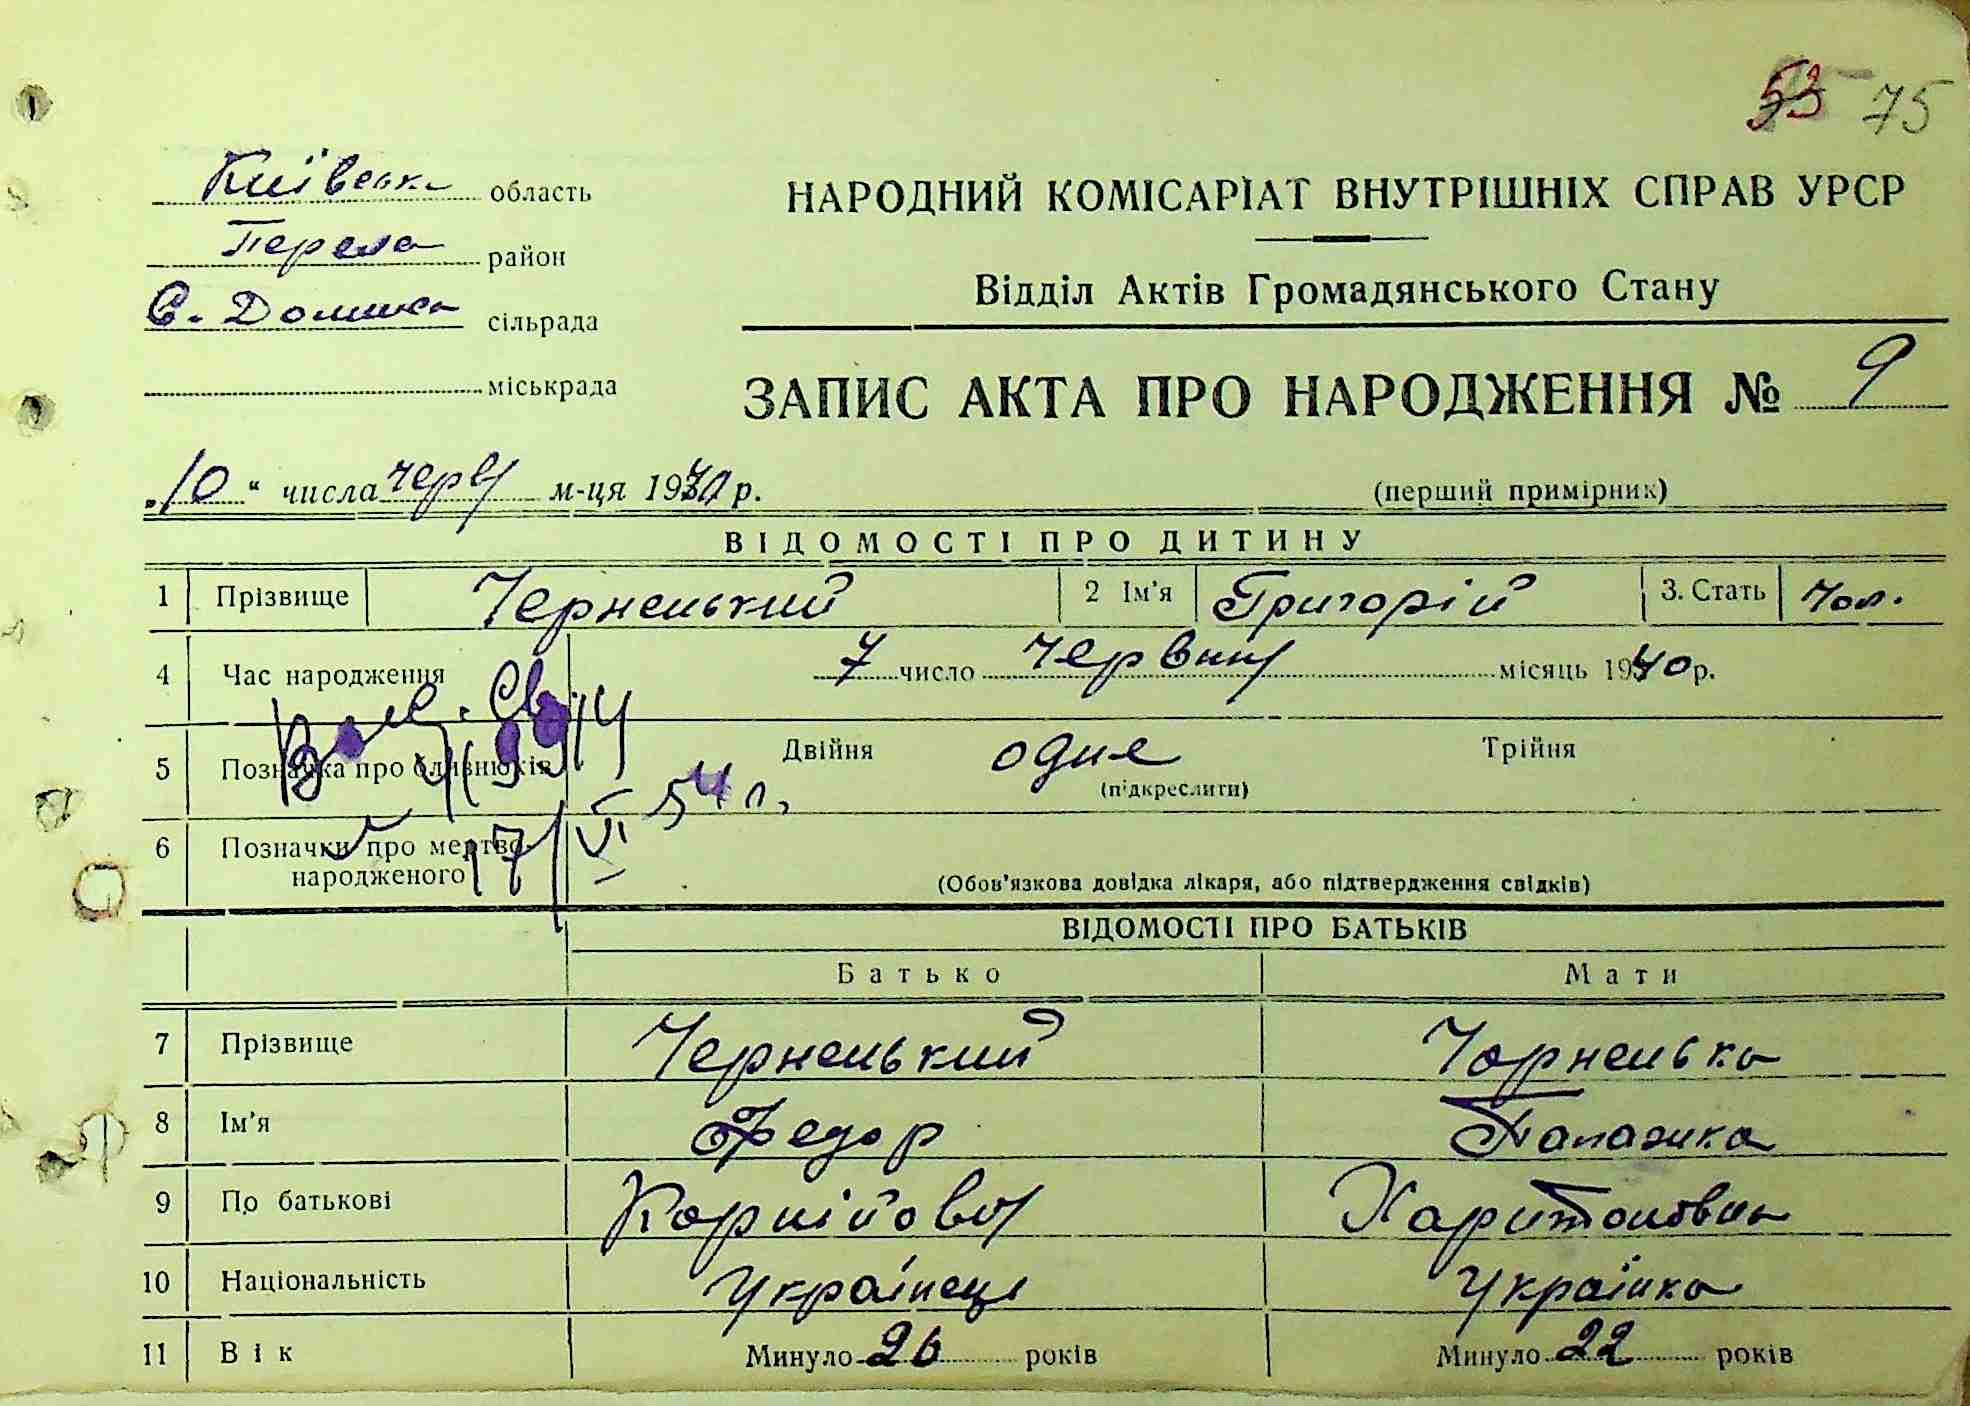 53 75
Київськ область
НАРОДНИЙ КОМІСАРІАТ ВНУТРІШНІХ СПРАВ УРСР
Перея район
Відділ Актів Громадянського Стану
С. Домшка сільрада
міськрада
ЗАПИС АКТА ПРО НАРОДЖЕННЯ № 9
„10“ числа черв м-ця 1940 р.
(перший примірник)
ВІДОМОСТІ ПРО ДИТИНУ
1 Прізвище Черненький 2 Ім'я Григорій 3. Стать Чол.
4 Час народження 7 число червня місяць 1940 р.
5 Позначка про близнюків Двійня одне Трійня
(підкреслити)
17/VI 54 р.
6 Позначки про мертво-
народженого
(Обов'язкова довідка лікаря, або підтвердження свідків)
ВІДОМОСТІ ПРО БАТЬКІВ
Батько Мати
7 Прізвище Черненький Чорненька
8 Ім'я Федор Палажка
9 По батькові Корнійович Харитоновна
10 Національність Українець Українка
11 Вік Минуло 26 років Минуло 22 років